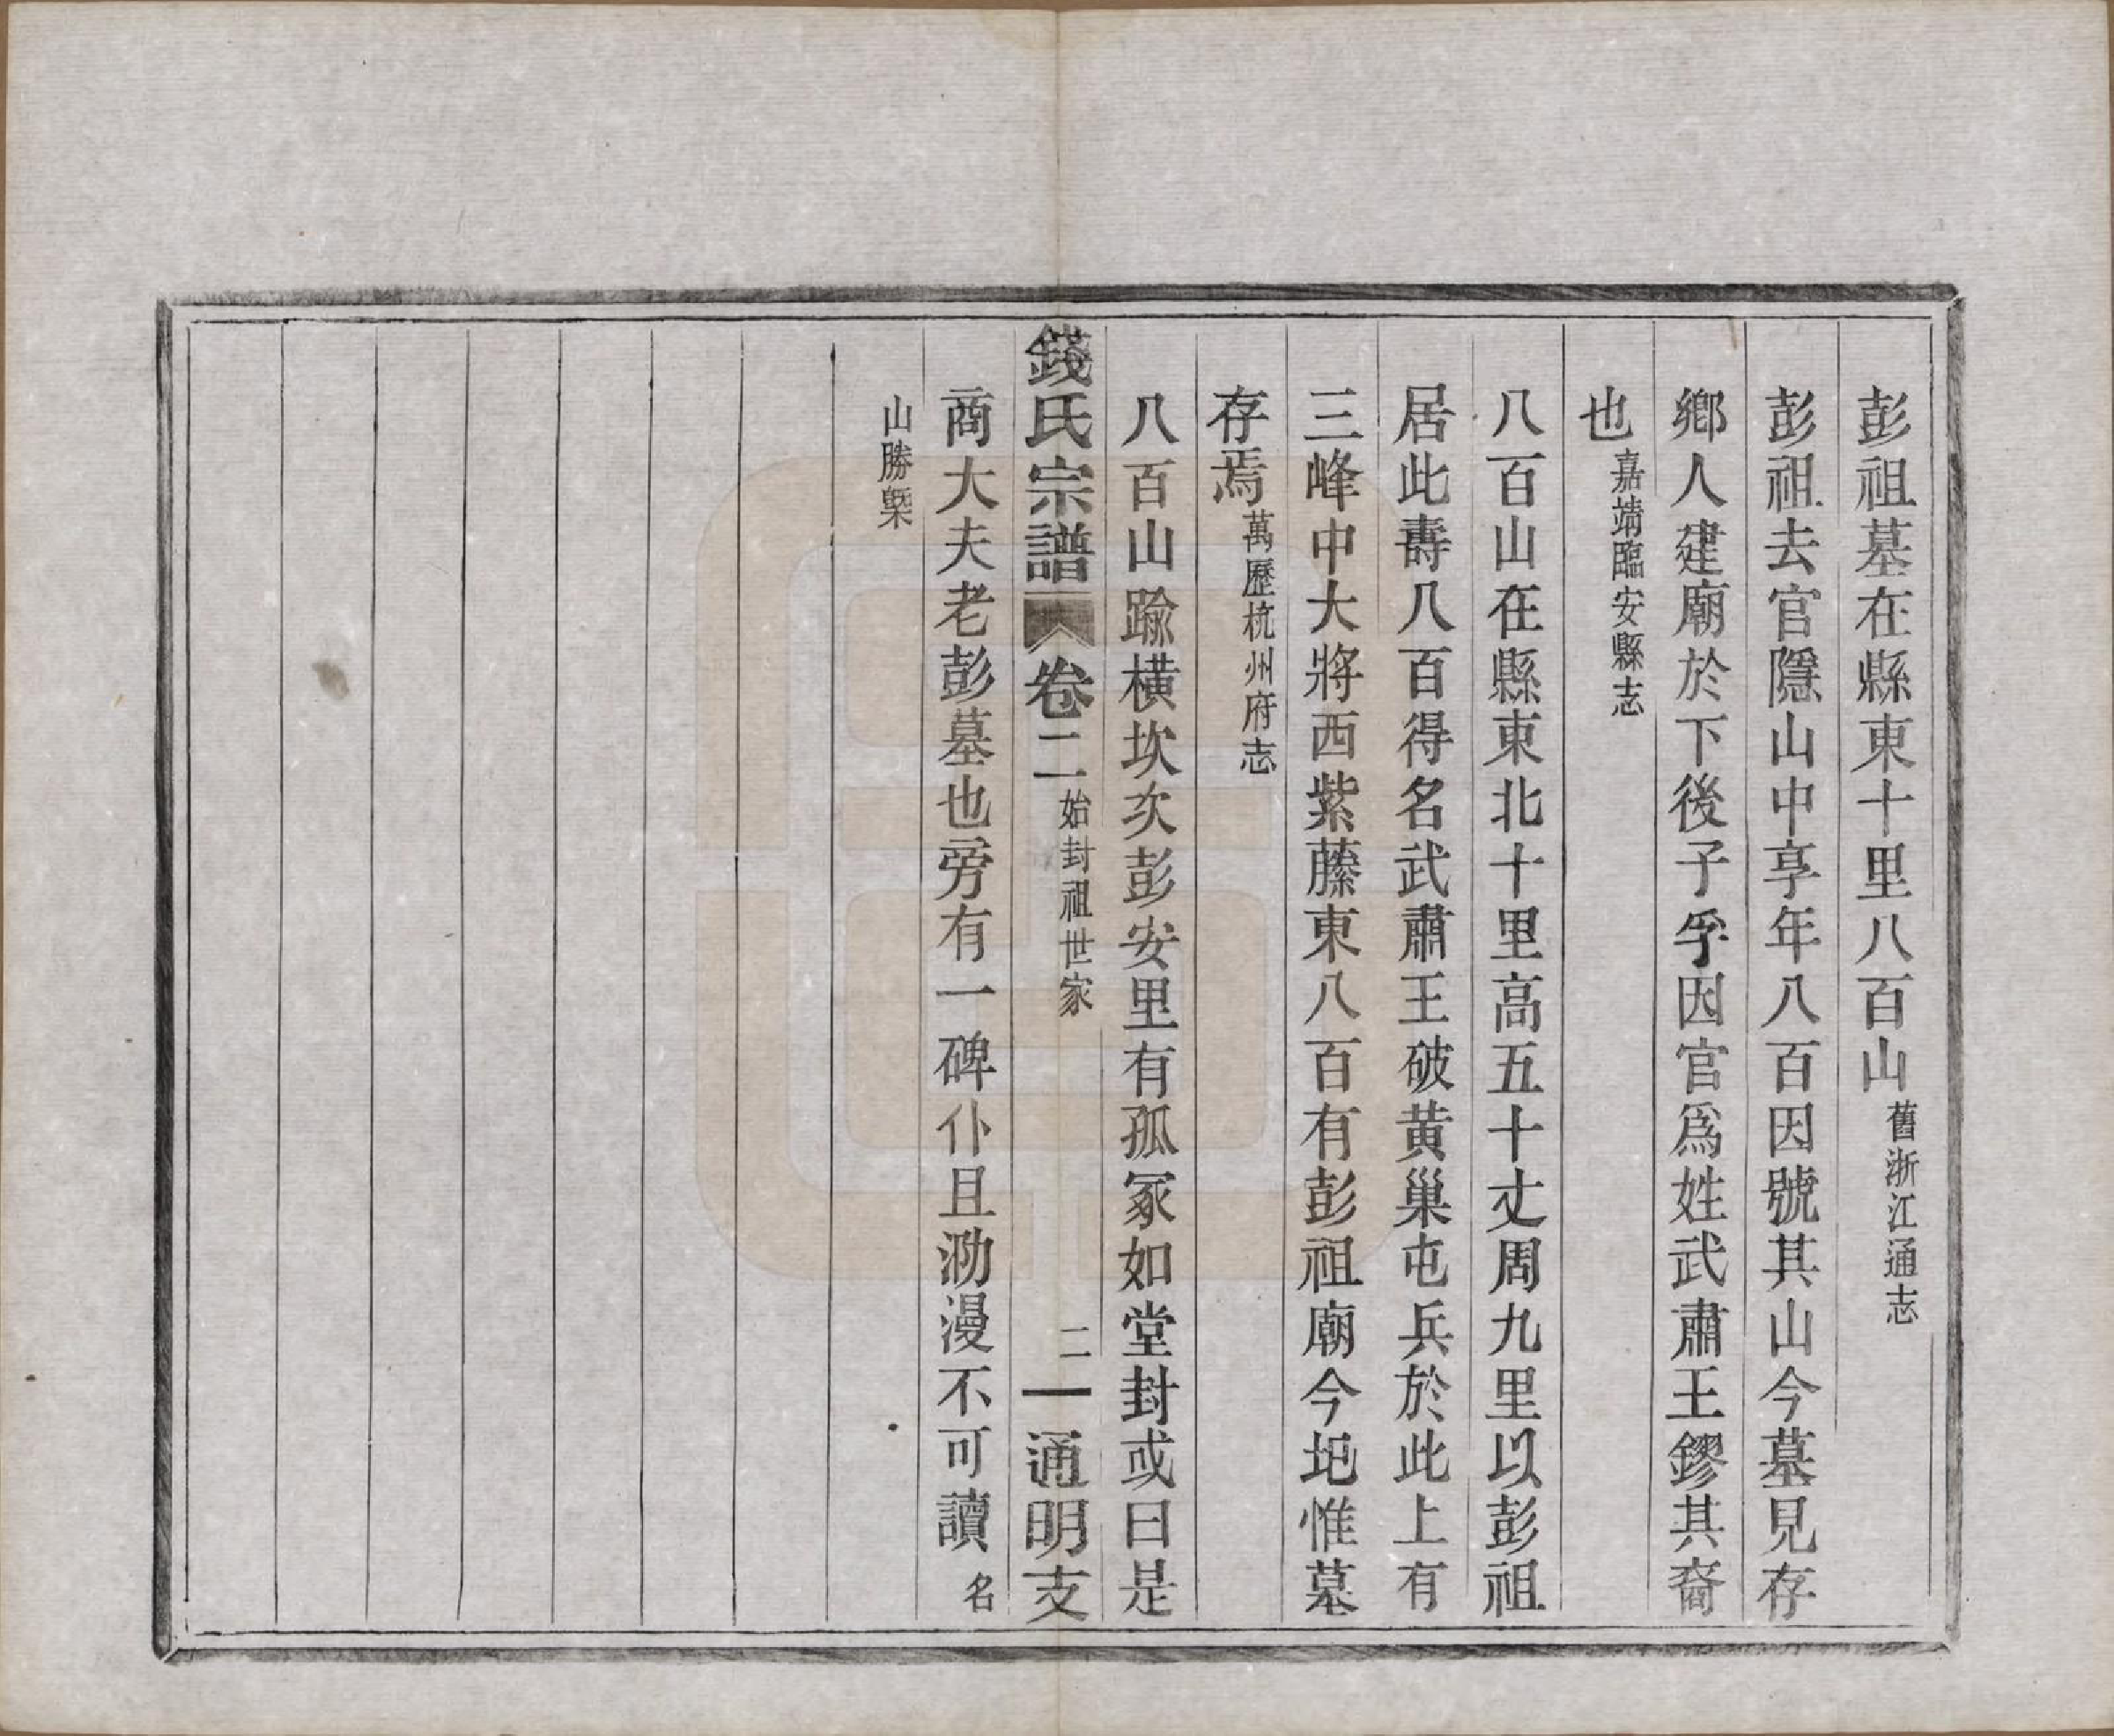 彭祖墓在縣東十里八百山舊浙江通志
彭祖去官隱山中享年八百因號其山今墓見存
鄉人建廟於下後子孚因官爲姓武肅王鏐其裔
也嘉靖臨安縣志
八百山在縣東北十里高五十丈周九里以彭祖
居此壽八百得名武肅王破黃巢屯兵於此上有
三峰中大將西紫藤東八百有彭祖廟今圯惟墓
存焉萬歷杭州府志
八百山踰橫坎次彭安里有孤冢如堂封或曰是
錢氏宗譜 卷二始封祖世家 二 通明支
商大夫老彭墓也旁有一碑仆且泐漫不可讀名
山勝槩